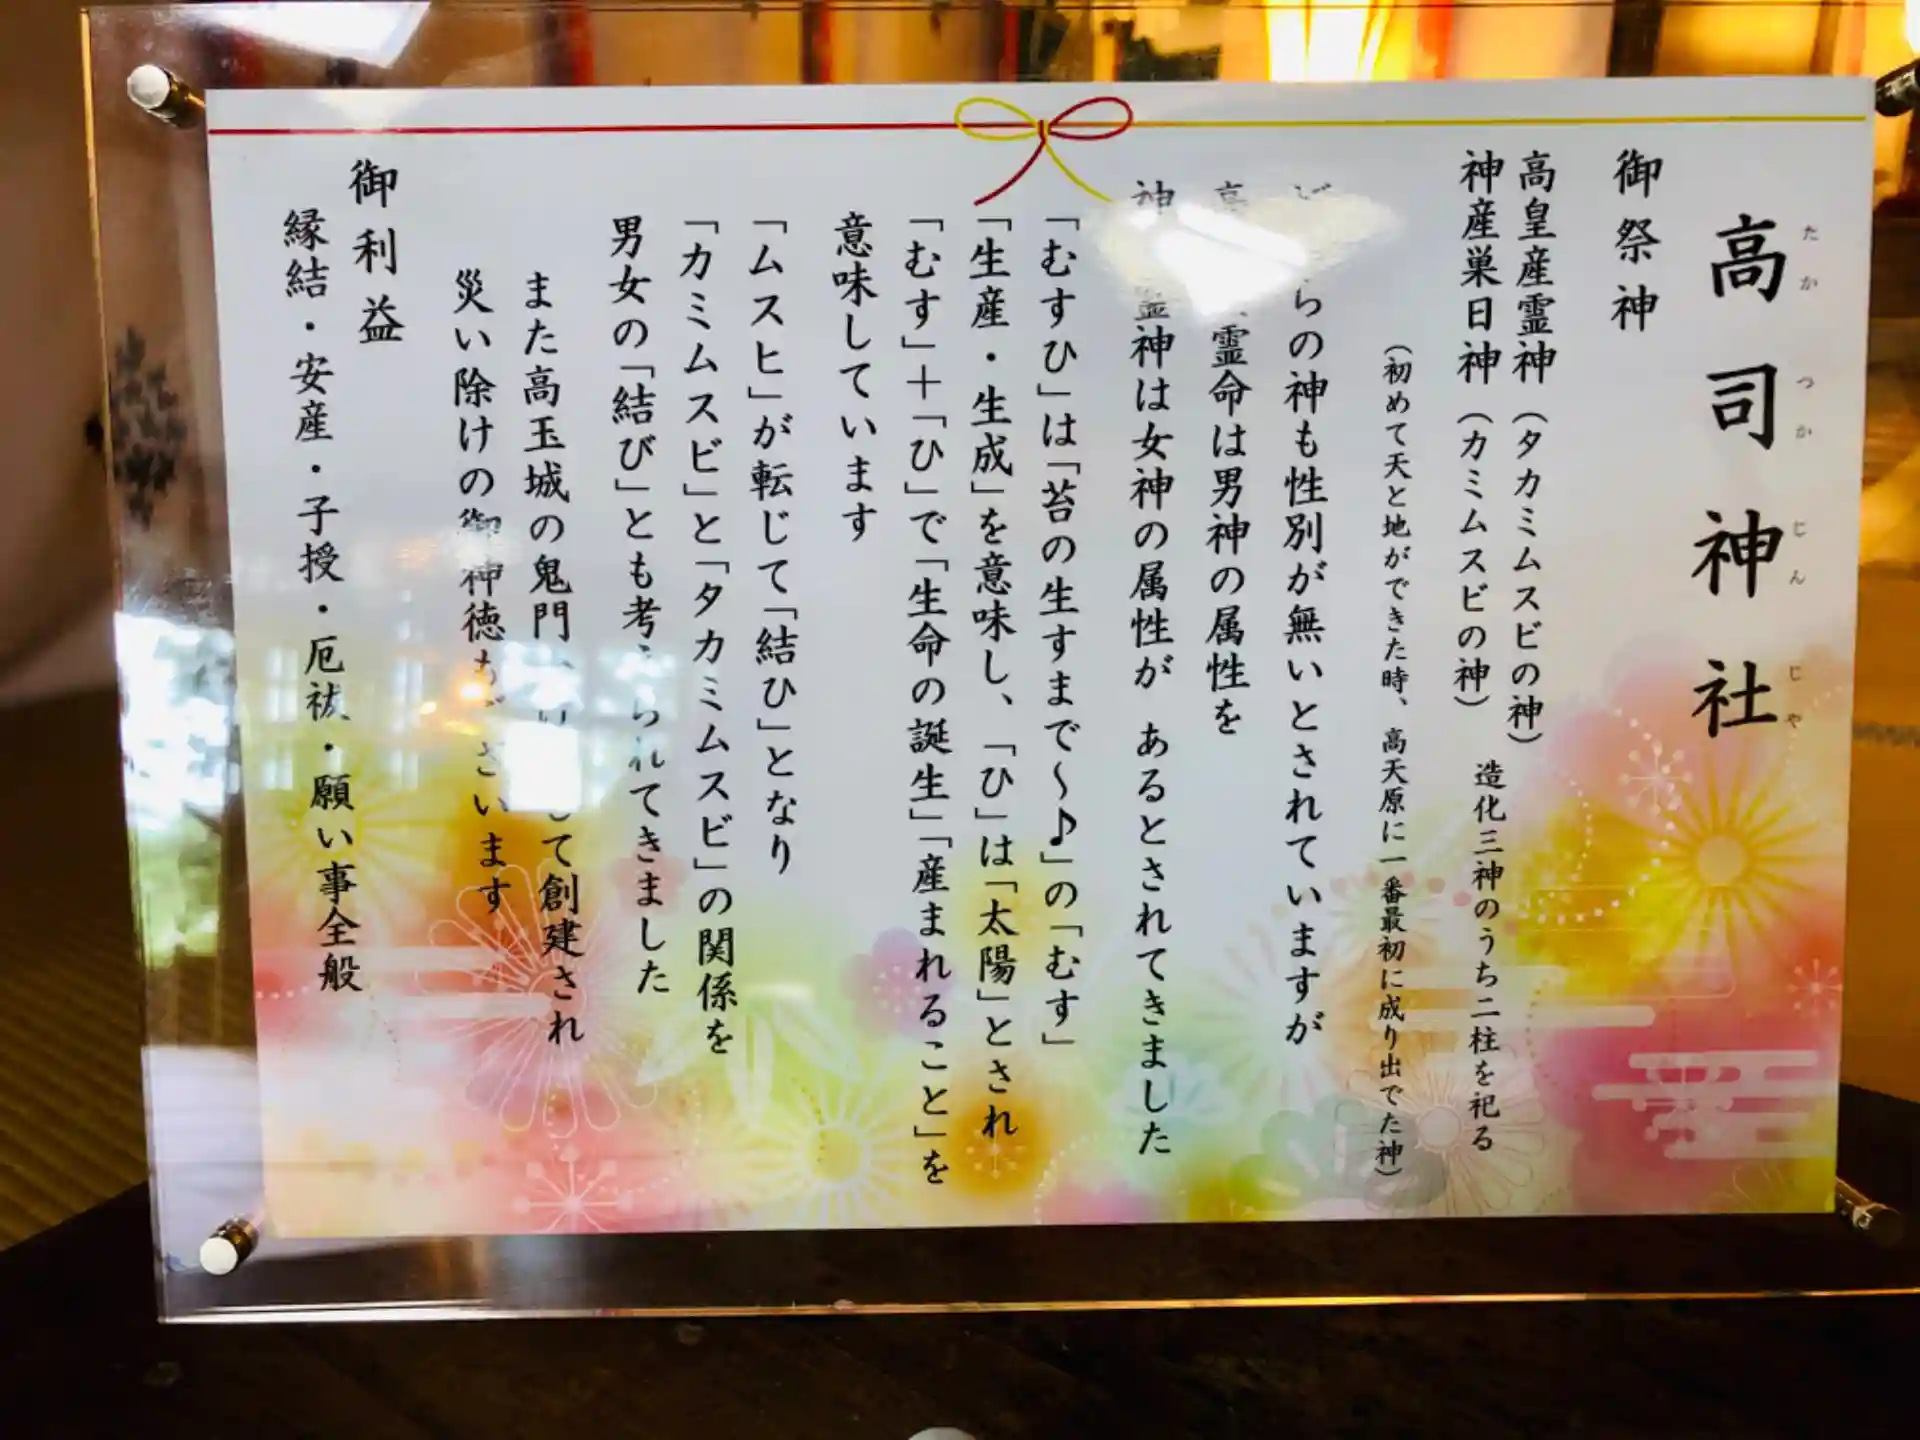 高司神社
たかつかじんじや
御祭神
高皇産霊神（タカミムスビの神）
神産巣日神（カミムスビの神）
造化三神のうち二柱を祀る
（初めて天と地ができた時、高天原に一番最初に成り出でた神）
らの神も性別が無いとされていますが
霊命は男神の属性を
神 霊神は女神の属性が あるとされてきました
「むすひ」は「苔の生すまで～♪」の「むす」
「生産・生成」を意味し、「ひ」は「太陽」とされ
「むす」＋「ひ」で「生命の誕生」「産まれること」を
意味しています
「ムスヒ」が転じて「結ひ」となり
「カミムスビ」と「タカミムスビ」の関係を
男女の「結び」とも考えられてきました
また高玉城の鬼門 して創建され
災い除けの御神徳もございます
御利益
縁結・安産・子授・厄祓・願い事全般